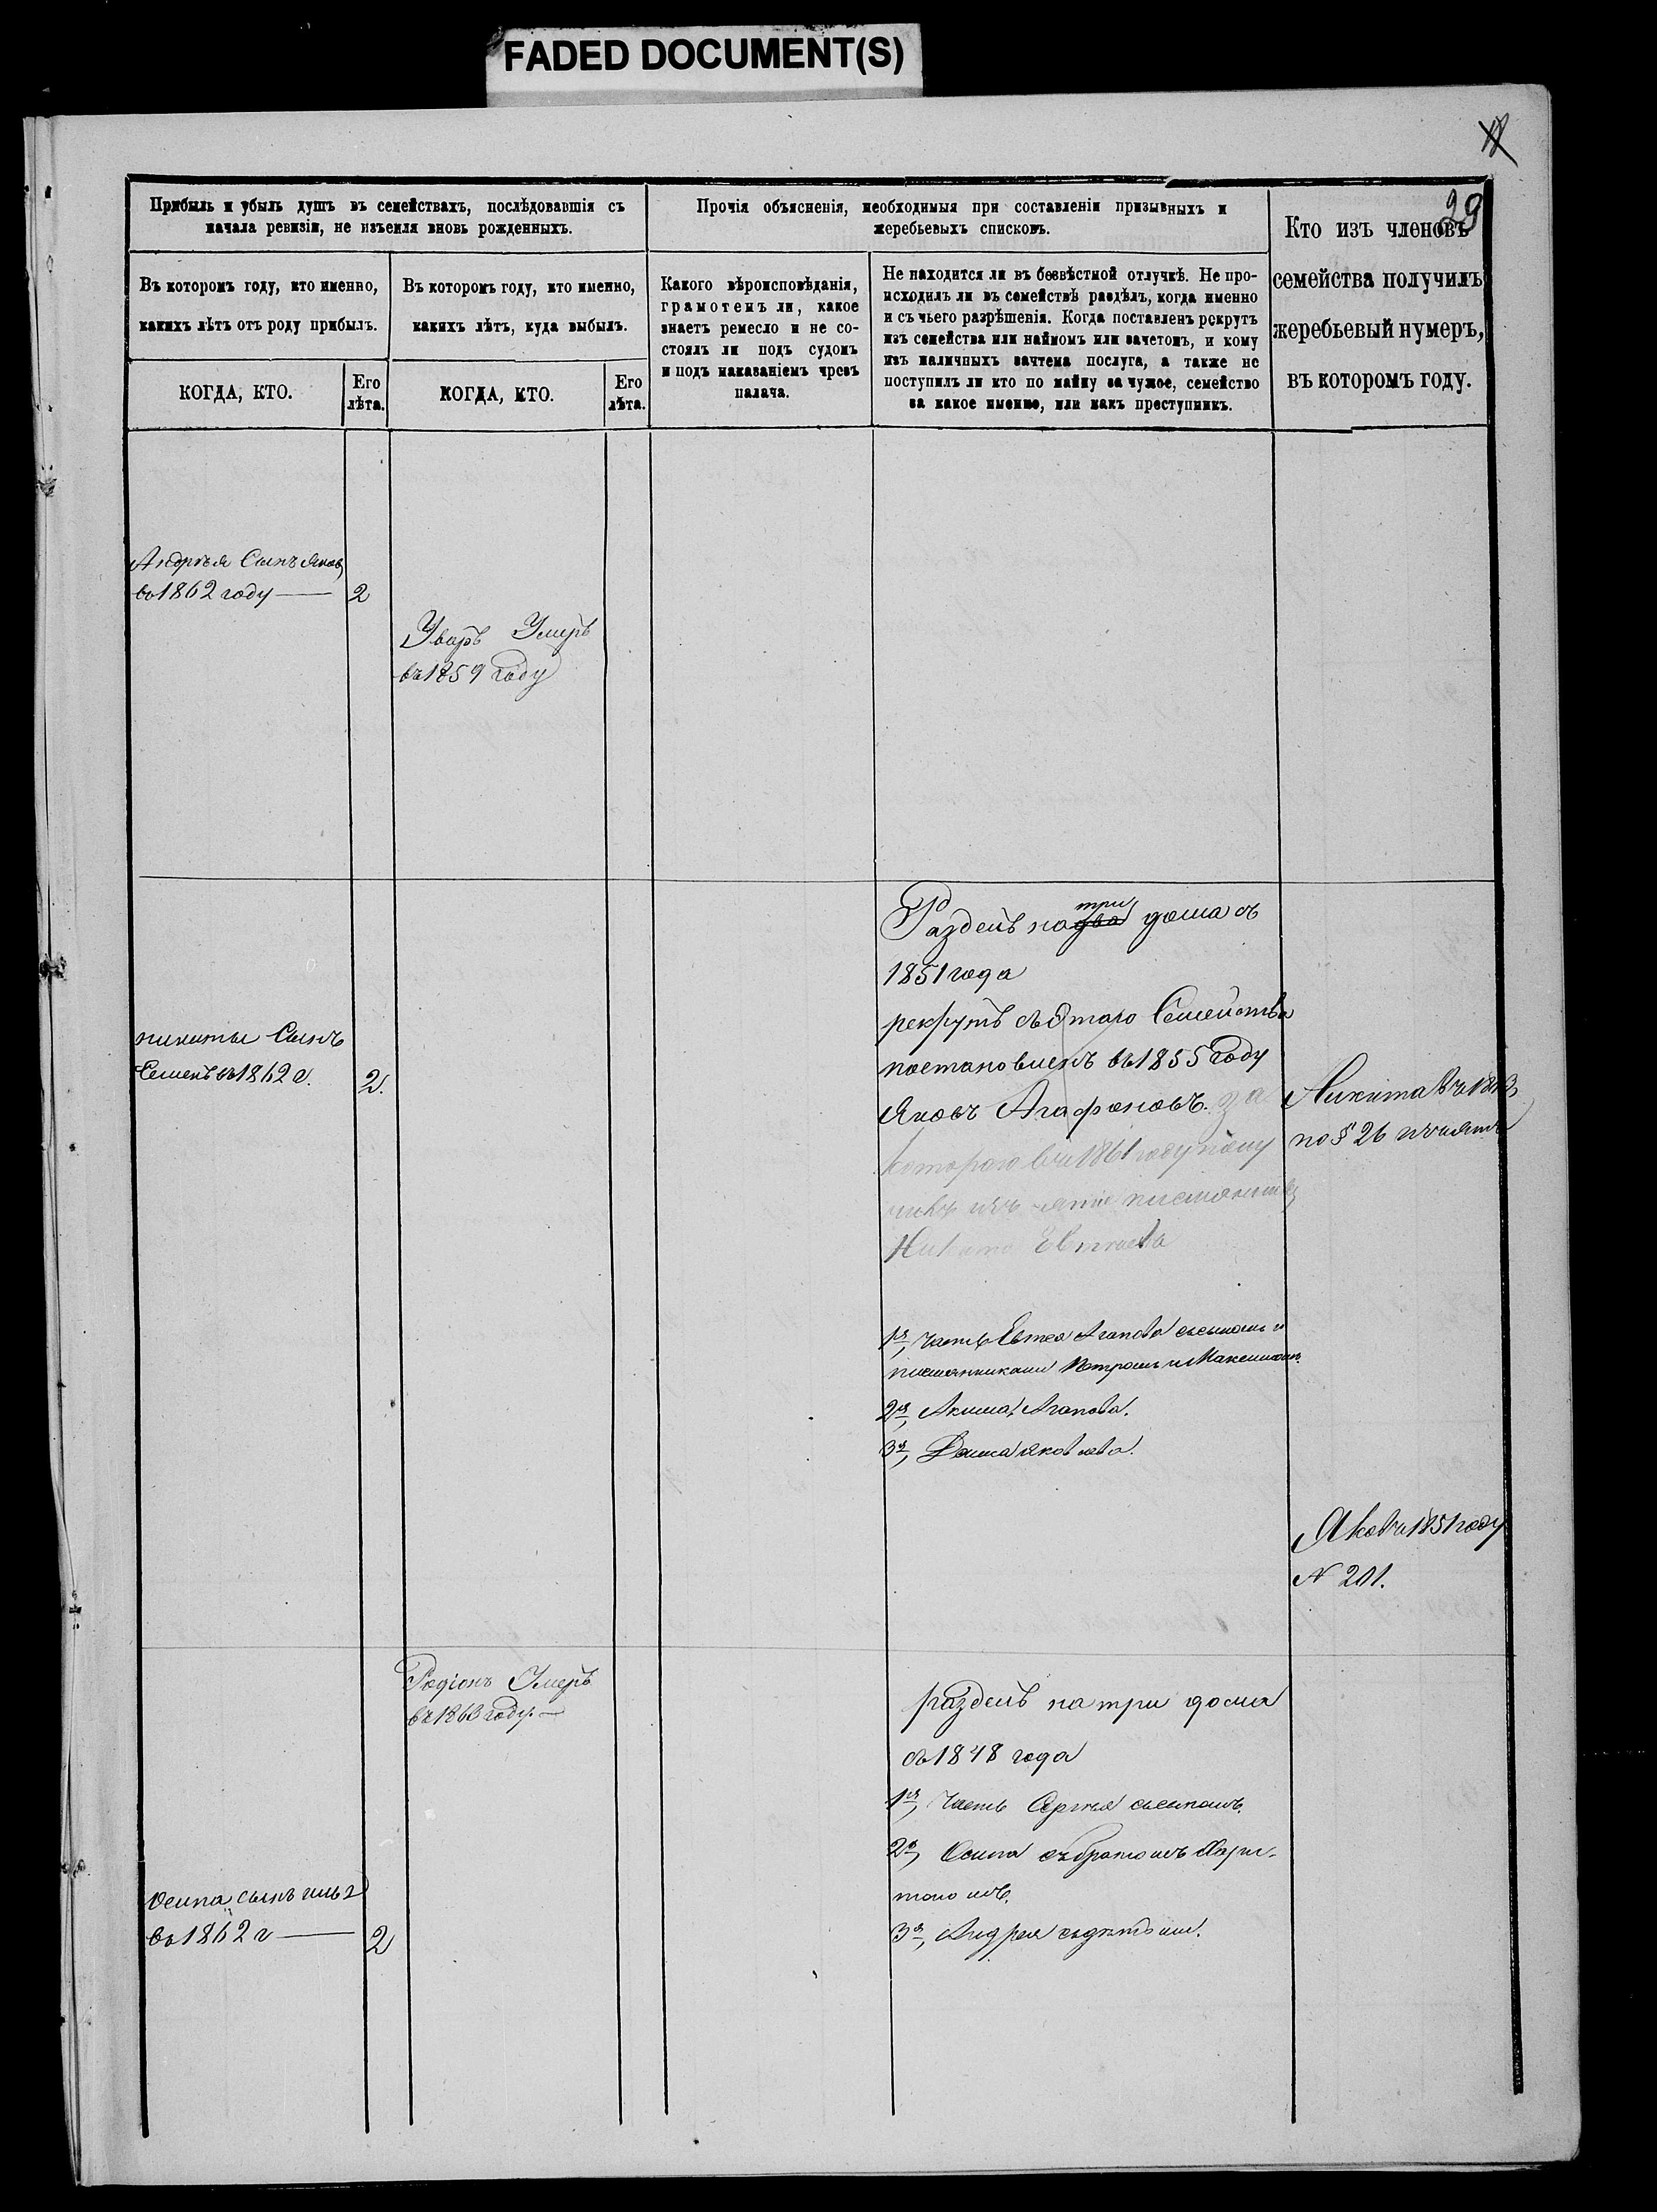 FADED DOCUMENT(S)
29
Прибыль и убыль душъ въ семействахъ, послѣдовавшія съ
начала ревизіи, не изъемля вновь рожденныхъ.
Прочія объясненія, необходимыя при составленіи призывныхъ и
жеребьевыхъ списковъ.
Кто изъ членовъ
семейства получилъ
жеребьевый нумеръ,
въ которомъ году.
Въ которомъ году, кто именно,
какихъ лѣтъ отъ роду прибылъ.
Въ которомъ году, кто именно,
какихъ лѣтъ, куда выбылъ.
Какого вѣроисповѣданія,
грамотенъ ли, какое
знаетъ ремесло и не со-
стоялъ ли подъ судомъ
и подъ наказаніемъ чрезъ
палача.
Не находится ли въ безвѣстной отлучкѣ. Не про-
исходилъ ли въ семействѣ раздѣлъ, когда именно
и съ чьего разрѣшенія. Когда поставленъ рекрутъ
изъ семейства или наймомъ или зачетомъ, и кому
изъ наличныхъ зачтена послуга, а также не
поступилъ ли кто по найму за чужое, семейство
за какое именно, или какъ преступникъ.
КОГДА, КТО.
Его
лѣта.
КОГДА, КТО.
Его
лѣта.
Андрѣя Сынъ Яковъ
въ 1862 году — 2
Уваръ Умеръ
въ 1859 году
Разделъ на два три дома съ
1851 года
рекрутъ съ этаго Семейства
постановленъ въ 1855 году
Яковъ Агафоновъ. за
котораго въ 1861 году
Никита
никиты Сынъ
Семенъ въ 1862 г. 2.
Никита въ
по § 26 изъятъ
1я, часть Евтея Агапова съ сыномъ и
племянниками Петромъ и Максимомъ.
2я, Акима Агапова.
3я, Яковлева.
Яковъ 1851 году
№ 201.
Родіонъ Умеръ
въ 1863 году. —
разделъ на три дома
съ 1848 года
1я, Часть Сергея съ сыномъ.
2я, Осипа съ братомъ Хари-
тономъ.
3я, Андрея съ детьми.
Осипа сынъ илья
въ 1862 г — 2